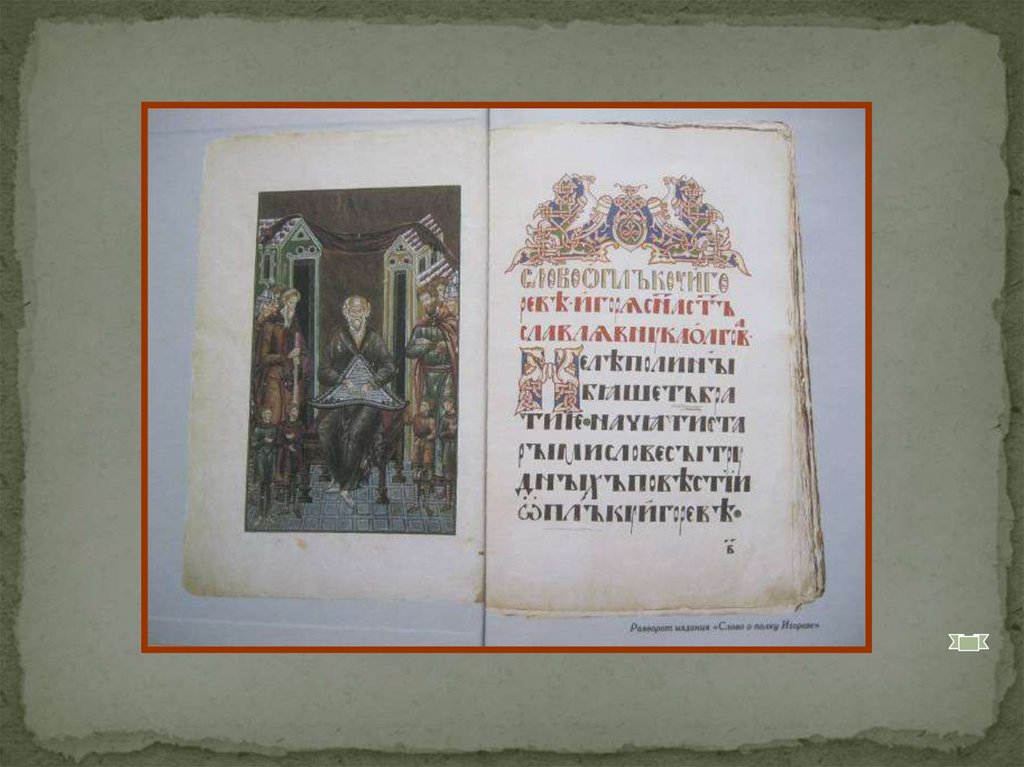 СЛОВОѠПЛЪКꙊИГО
РЕВѢ·ИГОРѦС҃НАСТ҃Ъ
СЛАВЛѦВНꙊКАОЛГОВⷶ·
НЕЛѢПОЛИНЫ
БꙖШЕТЪБРА
ТИѤ·НАЧѦТИСТА
РЫМИСЛОВЕСЫТРꙊ
ДНЫХЪПОВѢСТІИ
ѠПЛЪКꙊИГОРЕВѢ·
в҃
Разворот издания «Слово о полку Игореве»